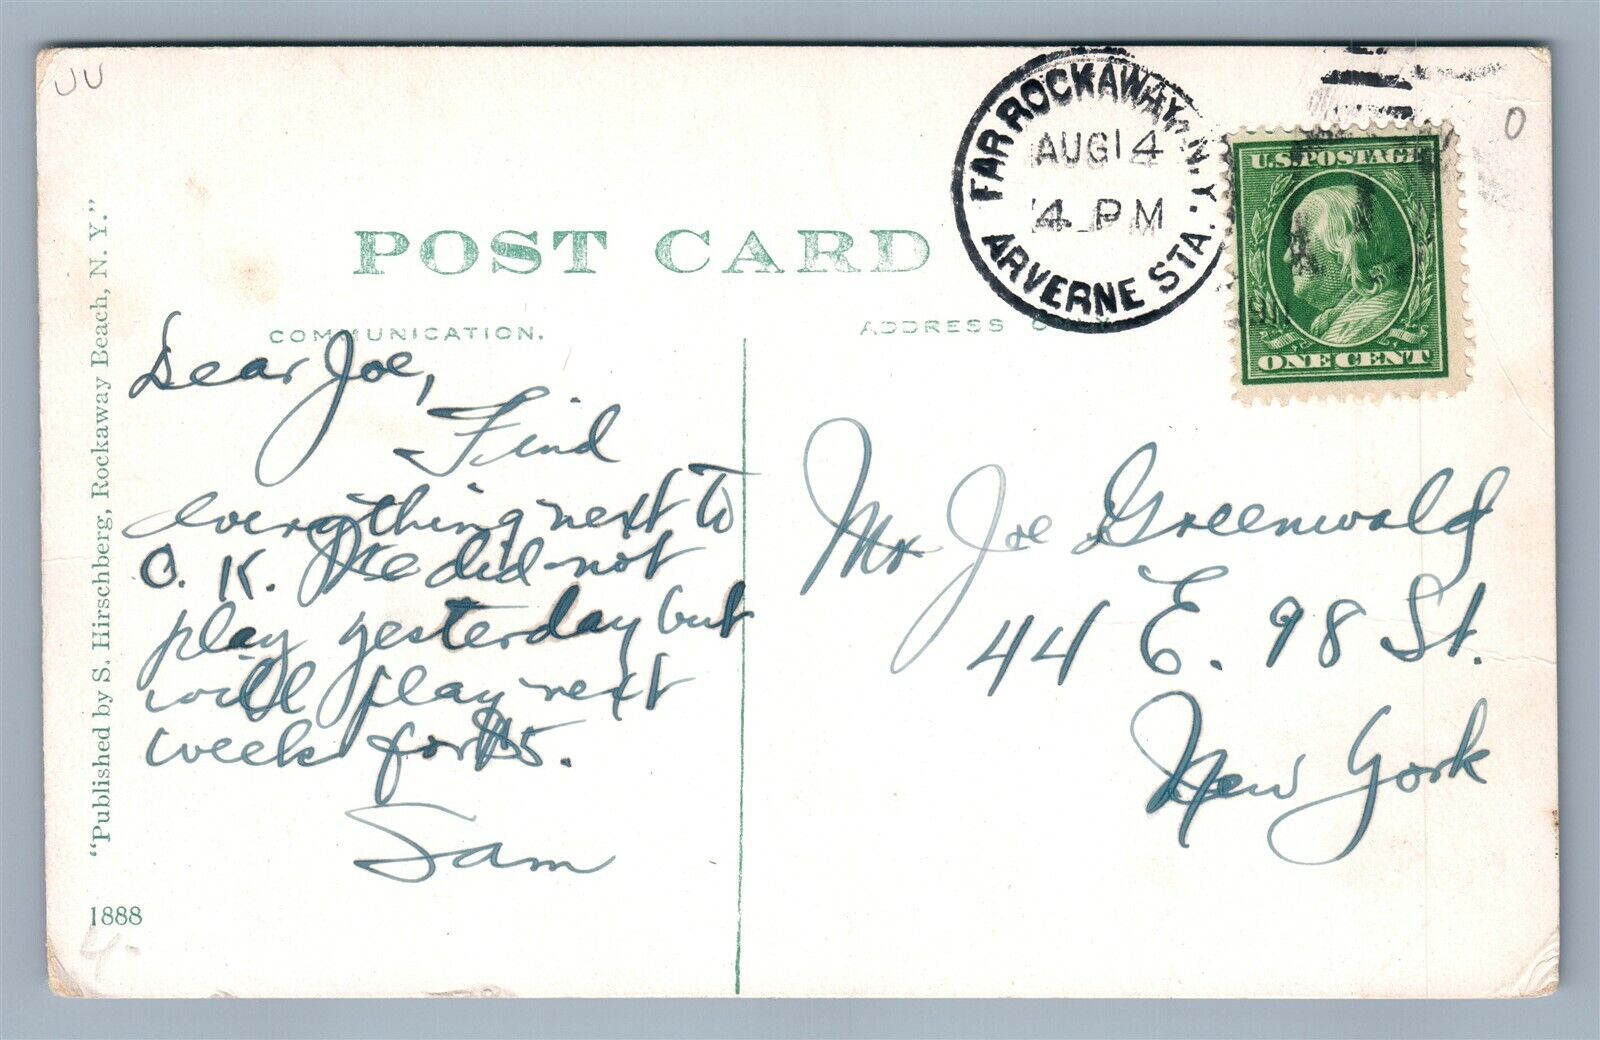 UU
FAR ROCKAWAY, N.Y.
AUG 14
4 PM
ARVERNE STA.
191
U.S.POSTAGE
ONE CENT
O
POST CARD
COMMUNICATION.
ADDRESS O
Dear Joe,
Find
everything next to
O. K. We did not
play yesterday but
will play next
week for $5.
Sam
Mr Joe Greenwald
44 E. 98 St.
New York
"Published by S. Hirschberg, Rockaway Beach, N. Y."
1888
4-